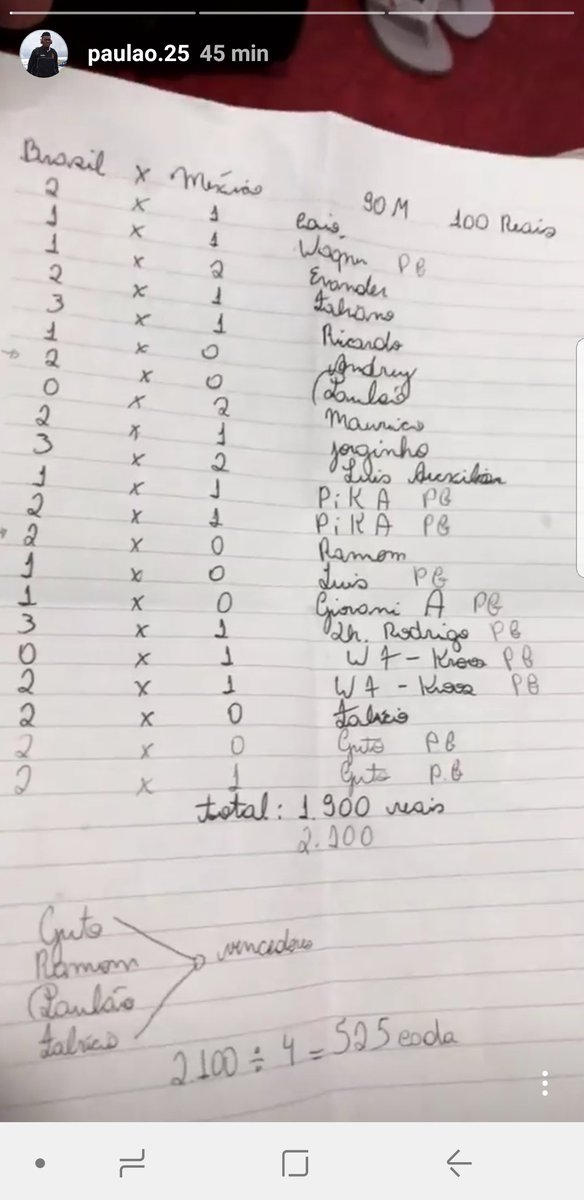 paulao.25 45 min
Brasil x México 90 M 100 Reais
2 x 1 Caio
1 x 1 Wagner PB
1 x 2 Evander
2 x 1 Fabiano
3 x 1 Ricardo
1 x 0 Andrey
2 x 0 Paulão
0 x 2 Mauricio
2 x 1 Jorginho
3 x 2 Auxiliar
1 x 1 PiKA PB
2 x 1 PiKA PB
2 x 0 Ramom
1 x 0 Luis PB
1 x 0 Giovani A PB
3 x 1 Th. Rodrigo PB
0 x 1 W7 - Kroos PB
2 x 1 W7 - Kroos PB
2 x 0 Fabricio
2 x 0 Guto PB
2 x 1 Guto P.B
total: 1.900 reais
2.100
Guto
Ramom vencedores
Paulão
Fabricio
2.100 ÷ 4 = 525 cada